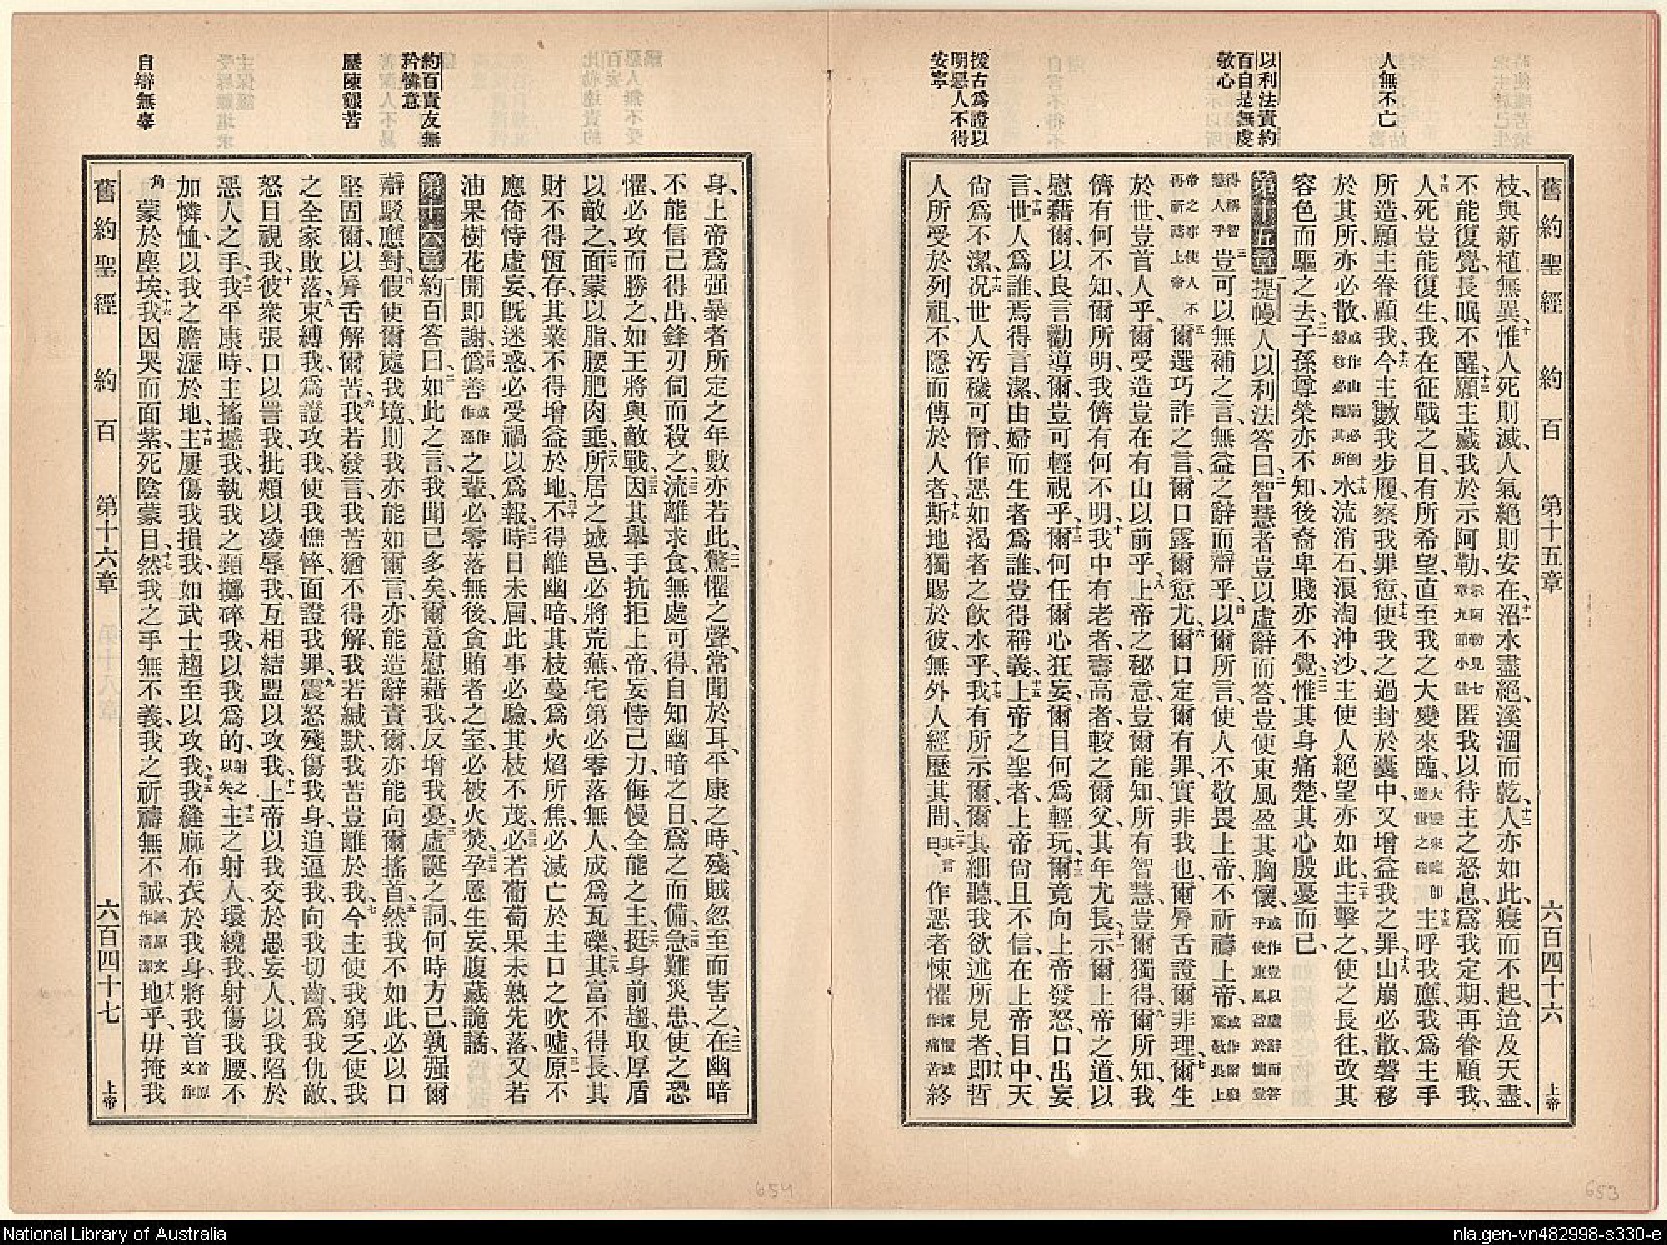 人無不亡
以利法責約
百自是無虔
敬心
援古為證以
明惡人不得
安寧
舊約聖經 約百 第十五章 六百四十六 上帝
枝、與新植無異、惟人死則滅、人氣絕則安在、沼水盡絕、溪涸而乾、人亦如此、寢而不起、迨及天盡、
不能復覺、長眠不醒、願主藏我於示阿勒、示阿勒見七章九節小註匿我以待主之怒息、為我定期、再眷顧我、
人死豈能復生、我在征戰之日、有所希望、直至我之大變來臨、大變來臨即逝世之確主呼我、我應、我為主手
所造、願主眷顧我、今主數我步履、察我罪愆、使我之過封於囊中、又增益我之罪、山崩必散、磐移
於其所、亦必散、或作山崩必倒磐移必離其所水流消石、浪淘沖沙、主使人絕望亦如此、主擊之、使之長往、改其
容色而驅之去、子孫尊榮亦不知、後裔卑賤亦不覺、惟其身痛楚、其心殷憂而已、
第十五章 提幔人以利法答曰、智慧者豈以虛辭而答、豈使東風盈其胸懷、或作豈以虛辭而答乎使東風盈於胸臆豈
得稱智慧人乎豈可以無補之言、無益之辭而辯乎、以爾所言、使人不敬畏上帝、不祈禱上帝、或作爾廢棄敬長上
帝之亦使人不再祈禱上帝爾選巧詐之言、爾口露爾愆尤、爾口定爾有罪、實非我也、爾脣舌證爾非理、爾生
於世、豈首人乎、爾受造豈在有山以前乎、上帝之秘意、豈爾能知、所有智慧、豈爾獨得、爾所知、我
儕有何不知、爾所明、我儕有何不明、我中有老者、壽高者、較之爾父、其年尤長、示爾上帝之道、以
慰藉爾、以良言勸導爾、豈可輕視乎、爾何任爾心狂妄、爾目何為輕玩、爾竟向上帝發怒、口出妄
言、世人為誰、焉得言潔、由婦而生者為誰、豈得稱義、上帝之聖者、上帝尙且不信、在上帝目中、天
尙為不潔、況世人汚穢可憎、作惡如渴者之飲水乎、我有所示爾、爾其細聽、我欲述所見者、卽哲
人所受於列祖、不隱而傳於人者、斯地獨賜於彼、無外人經歷其間、其言曰、作惡者悚懼、悚懼或作痛苦終
約百責友無
矜憐意
歷陳艱苦
自辯無辜
身、上帝為强暴者所定之年數亦若此、驚懼之聲、常聞於耳、平康之時、殘賊忽至而害之、在幽暗
不能信己得出、鋒刃伺而殺之、流離求食、無處可得、自知幽暗之日、為之而備、急難災患、使之恐
懼、必攻而勝之、如王將與敵戰、因其舉手抗拒上帝、妄恃己力、侮慢全能之主、挺身前趨、取厚盾
以敵之、面蒙以脂、腰肥肉垂、所居之城邑、必將荒蕪、宅第必零落無人、成為瓦礫、其富不得長、其
財不得恆存、其業不得增益於地、不得離幽暗、其枝蔓為火焰所焦、必滅亡於主口之吹噓、原不
應倚恃虛妄、旣迷惑、必受禍以為報、時日未屆、此事必驗、其枝不茂、必若葡萄果未熟先落、又若
油果樹、花開卽謝、僞善或作作孽之輩、必零落無後、貪賄者之室、必被火焚、孕惡生妄、腹藏詭譎、
第十六章 約百答曰、如此之言、我聞已多矣、爾意慰藉我、反增我憂、虛誕之詞、何時方已、孰强爾
辭駁應對、假使爾處我境、則我亦能如爾言、亦能造辭責爾、亦能向爾搖首、然我不如此、必以口
堅固爾、以脣舌解爾苦、我若發言、我苦猶不得解、我若緘默、我苦豈離於我、今主使我窮乏、使我
之全家敗落、束縛我、為證攻我、使我憔悴、面證我罪、震怒殘傷我身、追逼我、向我切齒、為我仇敵、
怒目視我、彼衆張口以詈我、批頰以凌辱我、互相結盟以攻我、上帝以我交於愚妄人、以我陷於
惡人之手、我平康時、主搖撼我、執我之頸、擲碎我、以我為的、射之以矢、主之射人環繞我、射傷我腰、不
加憐恤、以我之膽瀝於地、主屢傷我損我、如武士趨至以攻我、我縫麻布衣於我身、將我首首原文作
角蒙於塵埃、我因哭而面紫、死陰蒙目、然我之手無不義、我之祈禱無不誠、誠原文作清潔地乎、毋掩我
舊約聖經 約百 第十六章 六百四十七 上帝
654
653
National Library of Australia
nla.gen-vn482998-s330-e